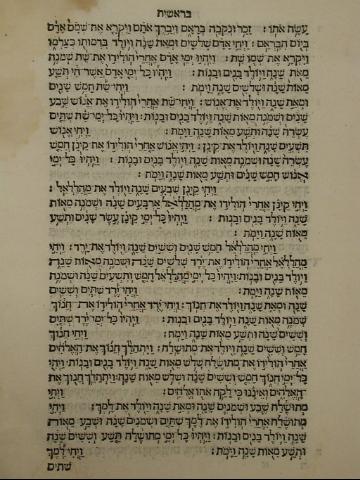 בראשית
עשה אתו : זכר ונקבה בראם ויברך אתם ויקרא את שמם אדם
ביום הבראם : ויחי אדם שלשים ומאת שנה ויולד בדמותו כצלמו
ויקרא את שמו שת : ויהיו ימי אדם אחרי הולידו את שת שמנה
מאת שנה ויולד בנים ובנות : ויהיו כל ימי אדם אשר חי תשע
מאות שנה ושלשים שנה וימת : ויחי שת חמש שנים
ומאת שנה ויולד את אנוש : ויחי שת אחרי הולידו את אנוש שבע
שנים ושמנה מאות שנה ויולד בנים ובנות : ויהיו כל ימי שת שתים
עשרה שנה ותשע מאות שנה וימת : ויחי אנוש
תשעים שנה ויולד את קינן : ויחי אנוש אחרי הולידו את קינן חמש
עשרה שנה ושמנה מאות שנה ויולד בנים ובנות : ויהיו כל ימי
אנוש חמש שנים ותשע מאות שנה וימת :
ויחי קינן שבעים שנה ויולד את מהללאל :
ויחי קינן אחרי הולידו את מהללאל ארבעים שנה ושמנה מאות
שנה ויולד בנים ובנות : ויהיו כל ימי קינן עשר שנים ותשע
מאות שנה וימת :
ויחי מהללאל חמש שנים וששים שנה ויולד את ירד : ויחי
מהללאל אחרי הולידו את ירד שלשים שנה ושמנה מאות שנה
ויולד בנים ובנות : ויהיו כל ימי מהללאל חמש ותשעים שנה ושמנה
מאות שנה וימת : ויחי ירד שתים וששים
שנה ומאת שנה ויולד את חנוך : ויחי ירד אחרי הולידו את חנוך
שמנה מאות שנה ויולד בנים ובנות : ויהיו כל ימי ירד שתים
וששים שנה ותשע מאות שנה וימת : ויחי חנוך
חמש וששים שנה ויולד את מתושלח : ויתהלך חנוך את האלהים
אחרי הולידו את מתושלח שלש מאות שנה ויולד בנים ובנות : ויהי
כל ימי חנוך חמש וששים שנה ושלש מאות שנה : ויתהלך חנוך את
האלהים ואיננו כי לקח אתו אלהים : ויחי
מתושלח שבע ושמנים שנה ומאת שנה ויולד את למך : ויחי
מתושלח אחרי הולידו את למך שתים ושמונים שנה ושבע מאות
שנה ויולד בנים ובנות : ויהיו כל ימי מתושלח תשע וששים שנה
ותשע מאות שנה וימת : ויחי למך
שתים